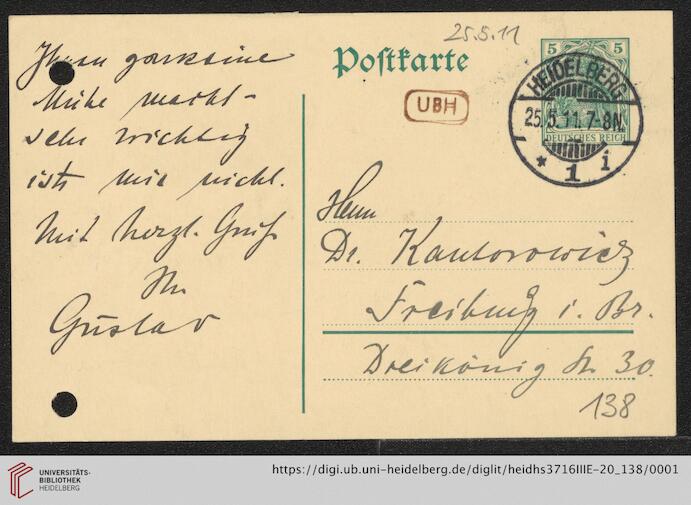 25.5.11
Postkarte
UBH
5 5
HEIDELBERG
25.5.11.7-8N.
* 1 i
DEUTSCHES REICH
Ihnen garkeine
Mühe macht –
sehr wichtig
ists mir nicht.
Mit herzl. Gruß
Ihr
Gustav
Herrn
Dr. Kantorowicz
Freiburg i. Br.
Dreikönig Str. 30.
138
UNIVERSITÄTS-
BIBLIOTHEK
HEIDELBERG
https://digi.ub.uni-heidelberg.de/diglit/heidhs3716IIIE-20_138/0001